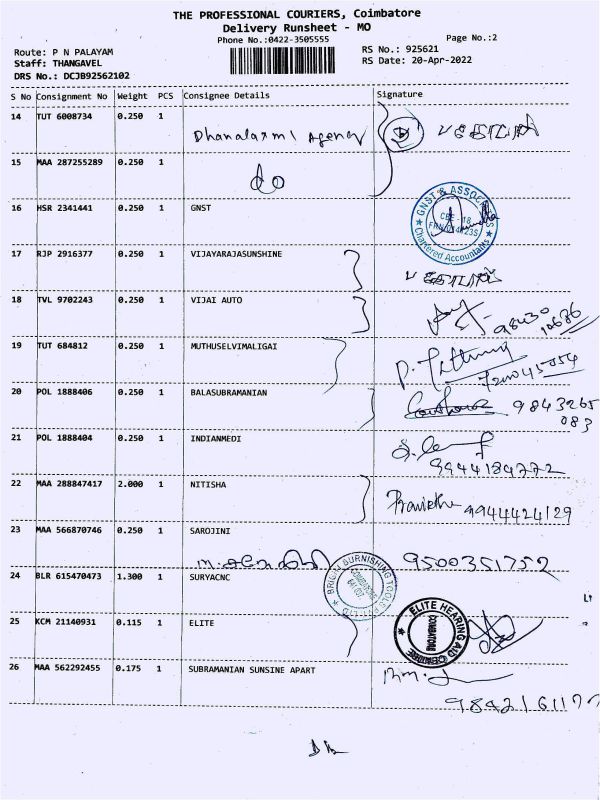 THE PROFESSIONAL COURIERS, Coimbatore
Delivery Runsheet - MO
Phone No.:0422-3505555
Page No.:2
Route: P N PALAYAM
RS No.: 925621
Staff: THANGAVEL
RS Date: 20-Apr-2022
DRS No.: DCJB92562102
S No Consignment No Weight PCS Consignee Details Signature
14 TUT 6008734 0.250 1 Dhanalaxmi Agency
15 MAA 287255289 0.250 1 do
16 HSR 2341441 0.250 1 GNST
GNST & ASSOCIATES
CBE - 18
Chartered Accountants
17 RJP 2916377 0.250 1 VIJAYARAJASUNSHINE
18 TVL 9702243 0.250 1 VIJAI AUTO
98430
10686
19 TUT 684812 0.250 1 MUTHUSELVIMALIGAI
20 POL 1888406 0.250 1 BALASUBRAMANIAN 9843265
083
21 POL 1888404 0.250 1 INDIANMEDI
9944184772
22 MAA 288847417 2.000 1 NITISHA 9944424129
23 MAA 566870746 0.250 1 SAROJINI
9500351752
24 BLR 615470473 1.300 1 SURYACNC
BRIGHT BURNISHING TOOLS
25 KCM 21140931 0.115 1 ELITE
ELITE HEARING AID
COIMBATORE
26 MAA 562292455 0.175 1 SUBRAMANIAN SUNSINE APART